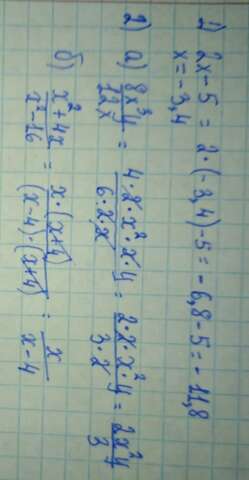 1) 2x-5 = 2·(-3,4)-5 = -6,8-5 = -11,8
x = -3,4
2) а) 8x³4/12x = 4·2·x²·x·4/6·2·x = 2·2·x²·4/3·2 = 2x²4/3
б) x²+4x/x²-16 = x·(x+4)/(x-4)·(x+4) = x/x-4